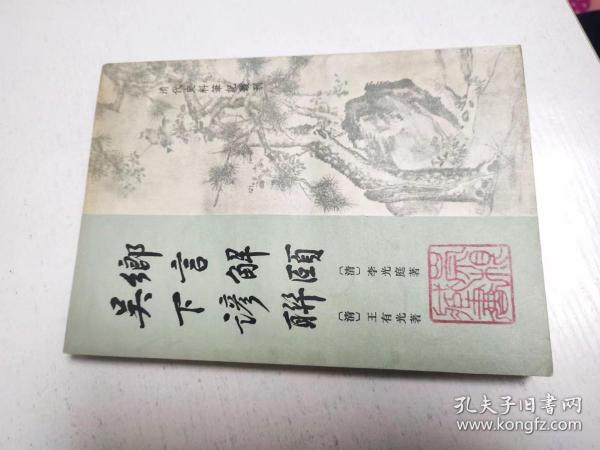 清代史料筆記叢刊
鄉言解頤
〔清〕李光庭著
吳下諺聯
〔清〕王有光著
孔夫子旧书网
www.kongfz.com